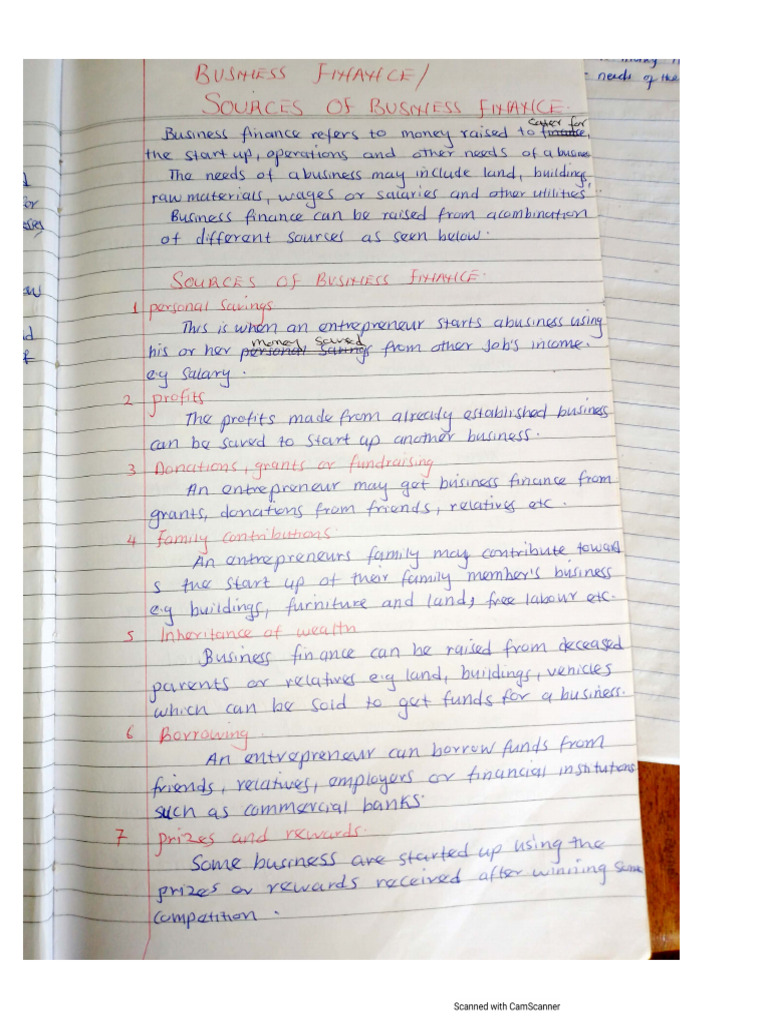 BUSINESS FINANCE/
SOURCES OF BUSINESS FINANCE.
Business finance refers to money raised to cater for
the start up, operations and other needs of a business
The needs of a business may include land, buildings,
raw materials, wages or salaries and other utilities.
Business finance can be raised from a combination
of different sources as seen below.
SOURCES OF BUSINESS FINANCE.
1 personal savings
This is when an entrepreneur starts a business using
his or her money saved from other Job's income.
e.g salary.
2 profits
The profits made from already established business
can be saved to start up another business.
3 Donations, grants or fundraising
An entrepreneur may get business finance from
grants, donations from friends, relatives etc.
4 Family contributions.
An entrepreneurs family may contribute toward
s the start up of their family member's business
e.g buildings, furniture and land, free labour etc.
5 Inheritance of wealth
Business finance can be raised from deceased
parents or relatives e.g land, buildings, vehicles
which can be sold to get funds for a business.
6 Borrowing.
An entrepreneur can borrow funds from
friends, relatives, employers or financial institutions
such as commercial banks.
7 prizes and rewards.
Some business are started up using the
prizes or rewards received after winning some
competition.
needs of the
Scanned with CamScanner